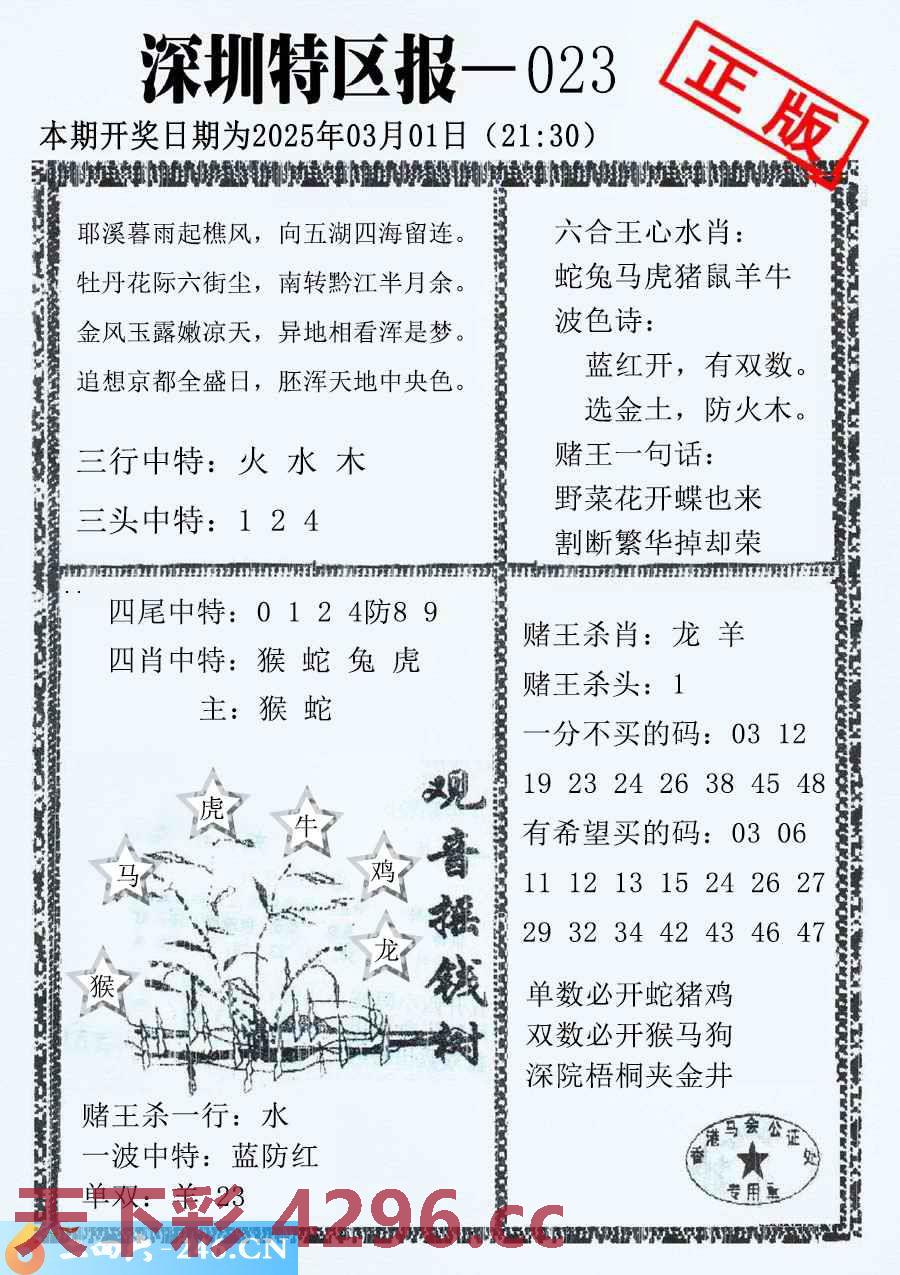 深圳特区报—023
正版
本期开奖日期为2025年03月01日（21:30）
耶溪暮雨起樵风，向五湖四海留连。
牡丹花际六街尘，南转黔江半月余。
金风玉露嫩凉天，异地相看浑是梦。
追想京都全盛日，胚浑天地中央色。
三行中特：火 水 木
三头中特：1 2 4
六合王心水肖：
蛇兔马虎猪鼠羊牛
波色诗：
蓝红开，有双数。
选金土，防火木。
赌王一句话：
野菜花开蝶也来
割断繁华掉却荣
四尾中特：0 1 2 4防8 9
四肖中特：猴 蛇 兔 虎
主：猴 蛇
观音摇钱树
虎
牛
马
鸡
龙
猴
赌王杀一行：水
一波中特：蓝防红
单双：羊 23
赌王杀肖：龙 羊
赌王杀头：1
一分不买的码：03 12
19 23 24 26 38 45 48
有希望买的码：03 06
11 12 13 15 24 26 27
29 32 34 42 43 46 47
单数必开蛇猪鸡
双数必开猴马狗
深院梧桐夹金井
香港马会公证处
专用章
天下彩 4296.cc
-246.CN